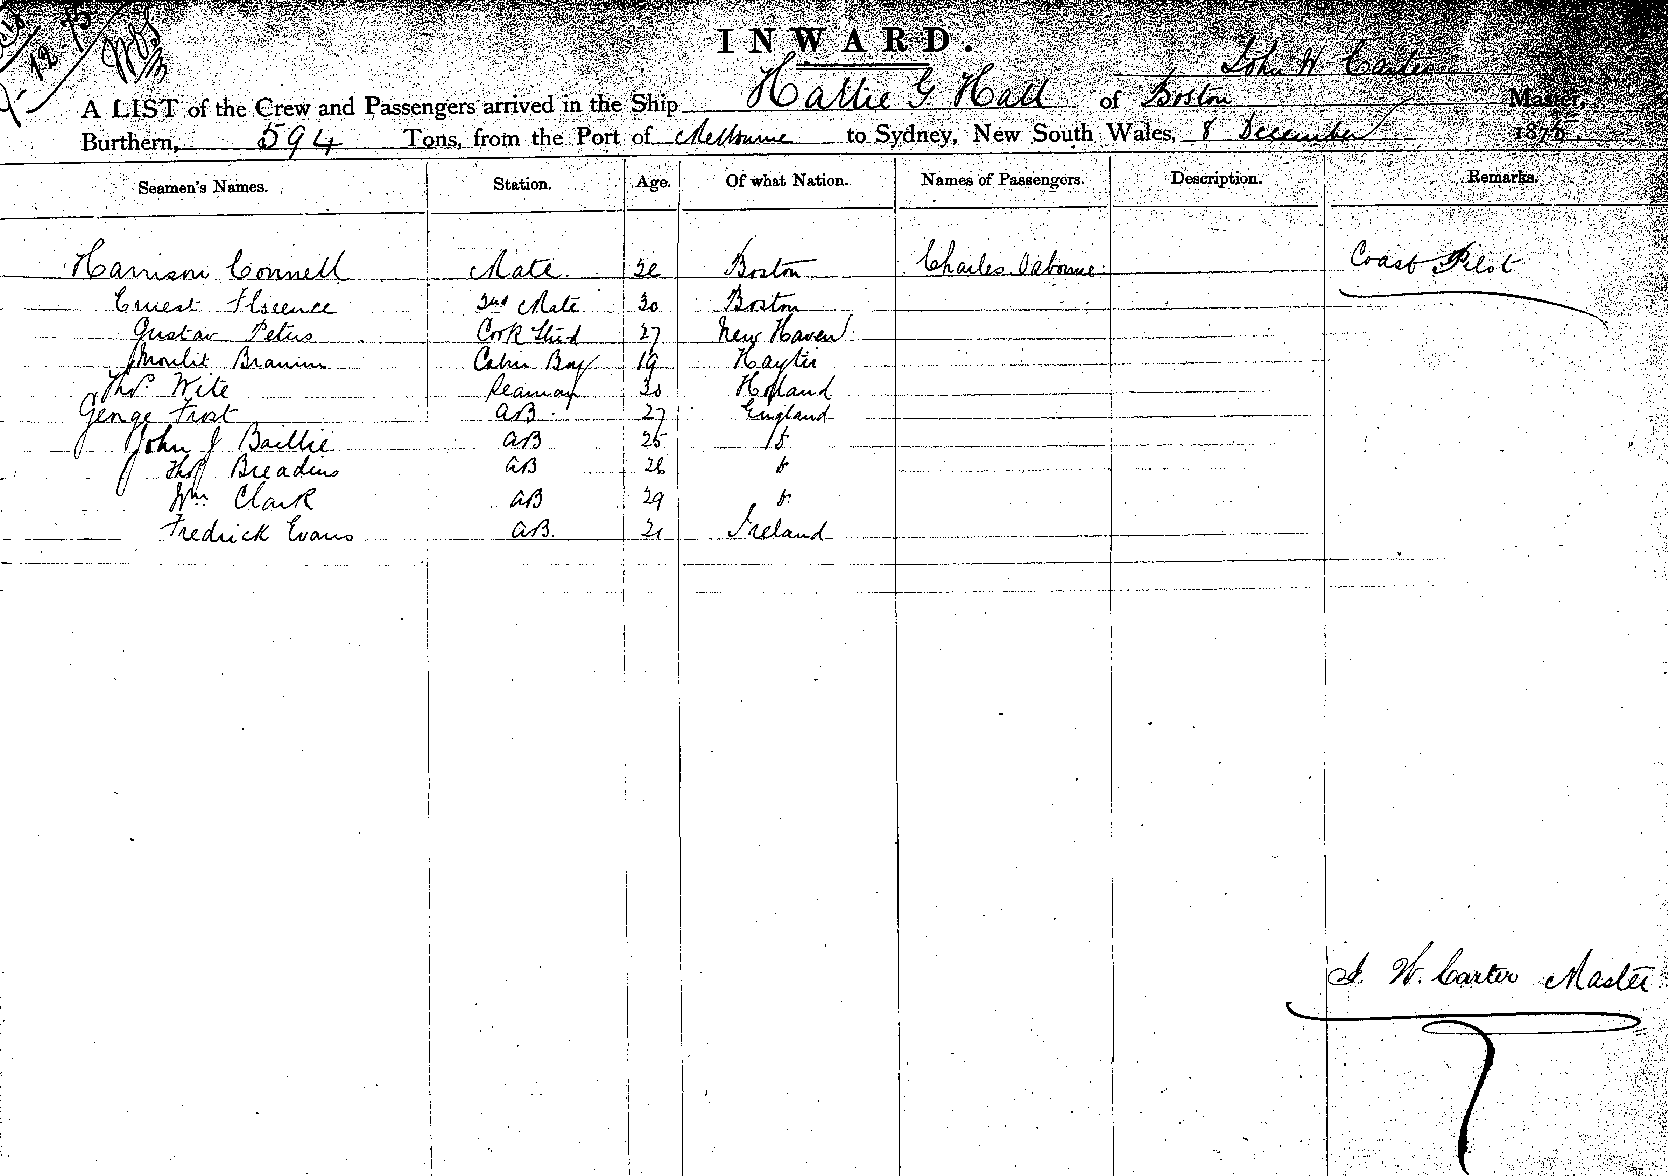 12-75
INWARD.
John W Carter
A LIST of the Crew and Passengers arrived in the Ship Hattie G Hall of Boston Master,
Burthern, 594 Tons, from the Port of Melbourne to Sydney, New South Wales, 8 December 187
Seamen's Names. Station. Age. Of what Nation. Names of Passengers. Description. Remarks.
Harrison Connell Mate Boston Charles Osborne Coast Pilot
Ernest Florence 2nd Mate 30 Boston
Gustav Peters Cook Stud 27 New Haven
Cabin Boy 19 Hayti
Thos. Wite Seaman 30 Holland
George Frost AB 27 England
John J Baillie AB 25
Thos Breadins AB 28
Wm. Clark AB 29
Fredrick Evans AB 21 Ireland
J. W. Carter Master